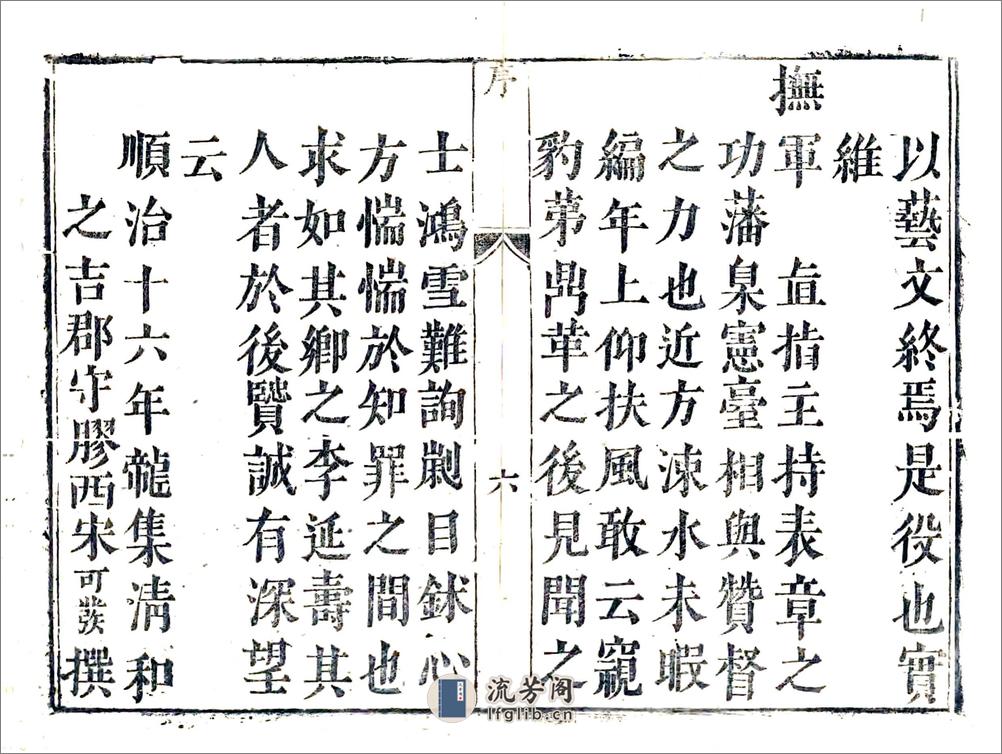 以藝文終焉是役也實
維
撫軍 直指主持表章之
功藩臬憲臺相與贊督
之力也近方涑水未暇
編年上仰扶風敢云窺
豹第鼎革之後見聞之
序
六
士鴻雪難詢劌目鉥心
方惴惴於知罪之間也
求如其鄉之李延壽其
人者於後賢誠有深望
云
順治十六年龍集清和
之吉郡守膠西宋可發撰
流芳阁
lfglib.cn